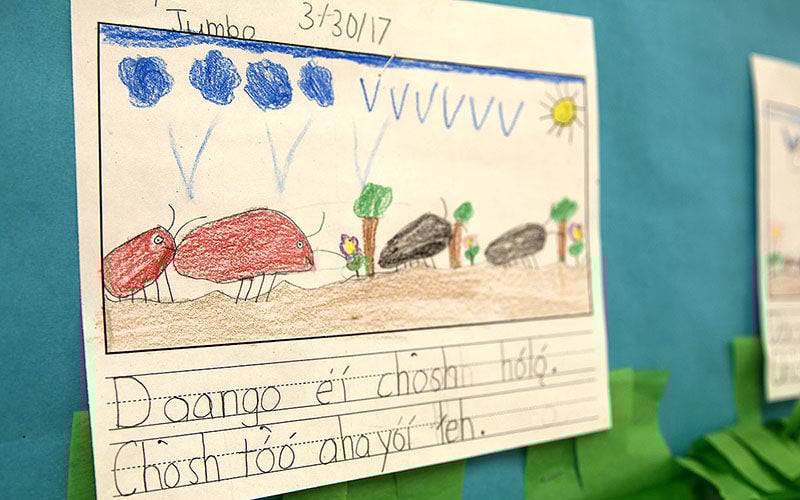 Jumbo 3-30/17
Daango éí chôsh hólǫ́.
Chôsh tôó ahayóí łeh.